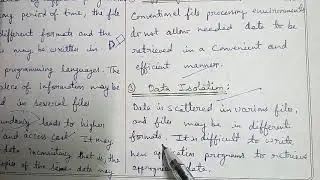 ing period of time, the file
different formats and the
may be written in
programming languages. The
of information may be
in several files
leads to higher
and access cost. It may
data inconsistency that is the
copies of the same data may
Conventional file processing environments
do not allow needed data to be
retrieved in a convenient and
efficient manner.
③ Data Isolation:
Data is scattered in various file,
and files may be in different
formats. It is difficult to write
new application programs to retrieve
appropriate data.